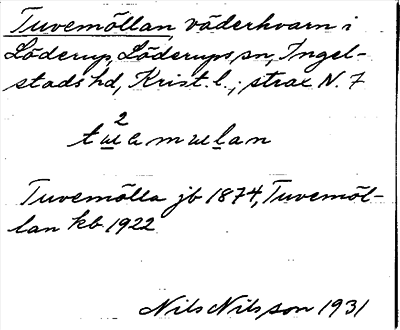 Tuvemöllan, väderkvarn i
Löderup, Löderups sn, Ingel-
stads hd, Krist. l.; strax N. 7
Tuvemölla jb 1874, Tuvemöl-
lan kb 1922
Nils Nilsson 1931